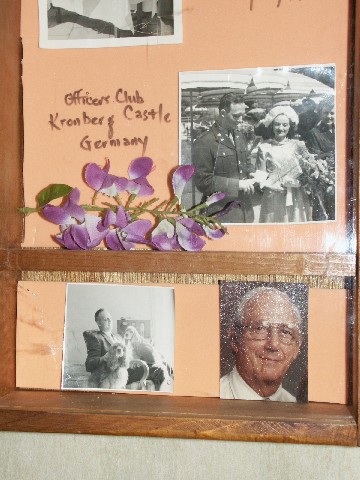 Officers Club
Kronberg Castle
Germany